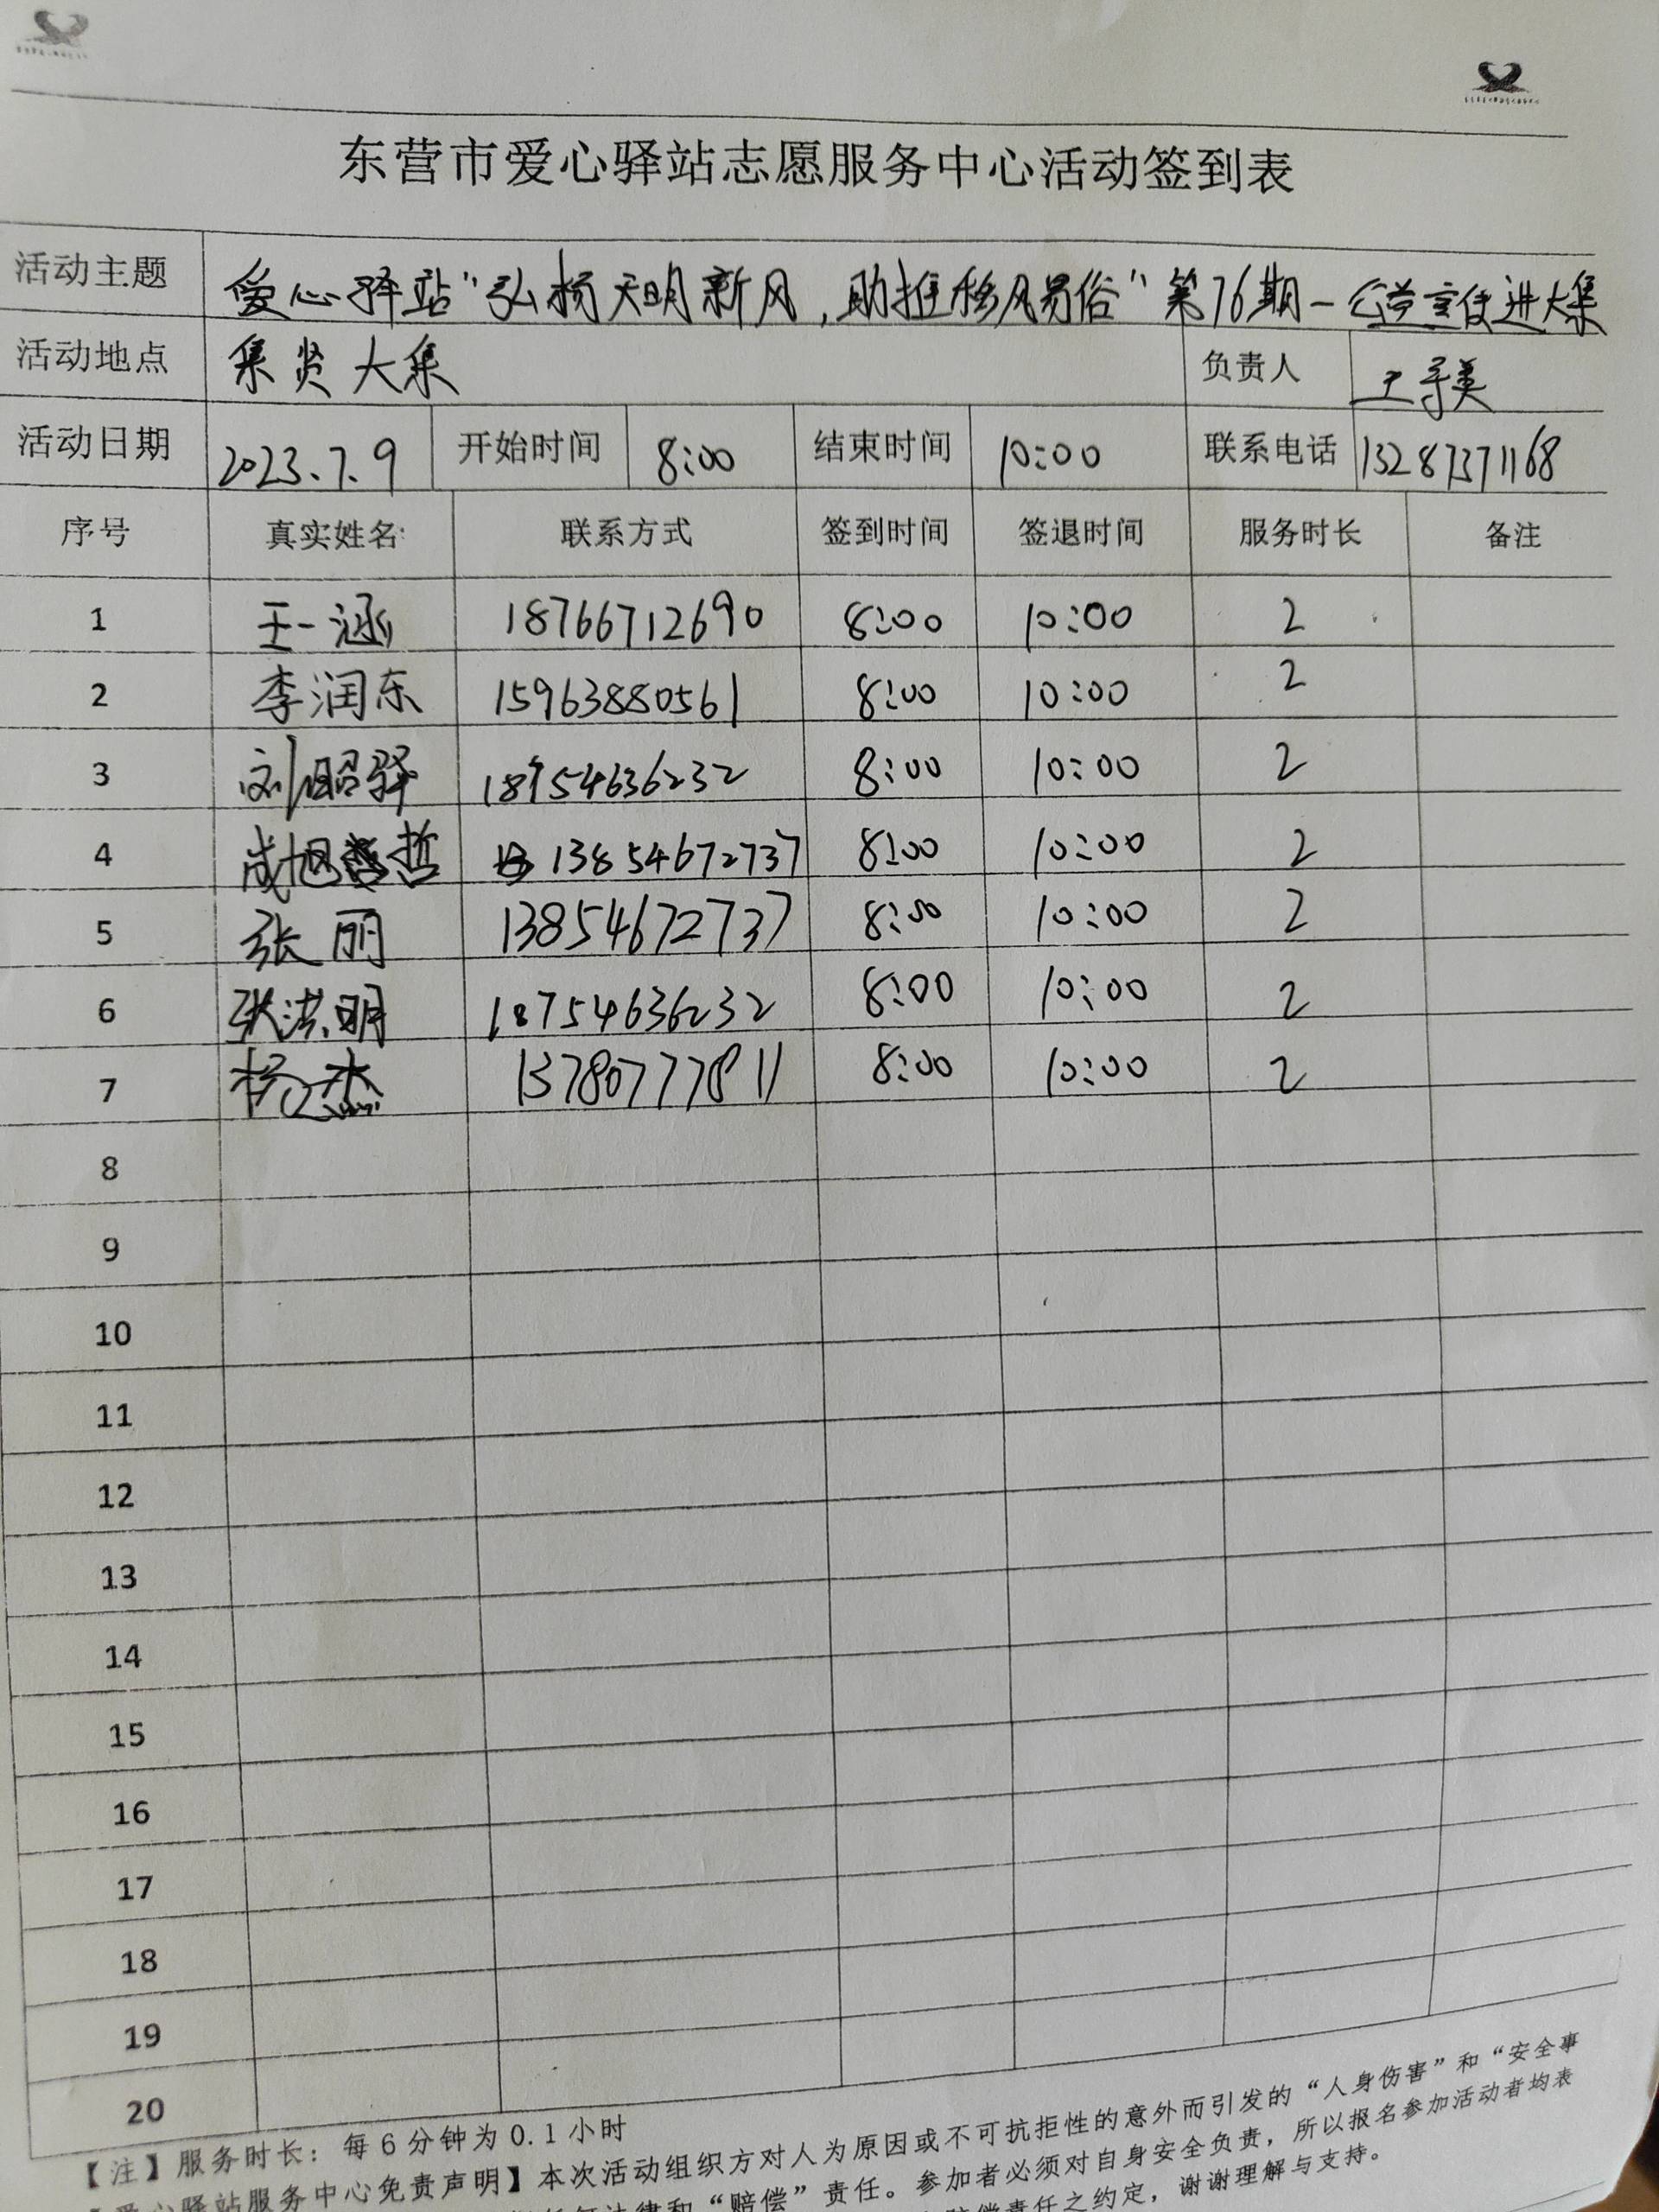 东营市爱心驿站志愿服务中心活动签到表
活动主题 爱心驿站“弘扬文明新风,助推移风易俗”第76期-公益宣传进大集
活动地点 集贤大集 负责人 王
活动日期 2023.7.9 开始时间 8:00 结束时间 10:00 联系电话 13287371168
序号 真实姓名 联系方式 签到时间 签退时间 服务时长 备注
1 王一涵 18766712690 8:00 10:00 2
2 李润东 15963880561 8:00 10:00 2
3 刘昭驿 18954636232 8:00 10:00 2
4 成旭哲 13854672737 8:00 10:00 2
5 张丽 13854672737 8:00 10:00 2
6 张洪明 18754636232 8:00 10:00 2
7 杨杰 13780777811 8:00 10:00 2
8
9
10
11
12
13
14
15
16
17
18
19
20
【注】服务时长：每6分钟为0.1小时
爱心驿站服务中心免责声明】本次活动组织方对人为原因或不可抗拒性的意外而引发的“人身伤害”和“安全事
任何法律和“赔偿”责任。参加者必须对自身安全负责，所以报名参加活动者均表
赔偿责任之约定，谢谢理解与支持。